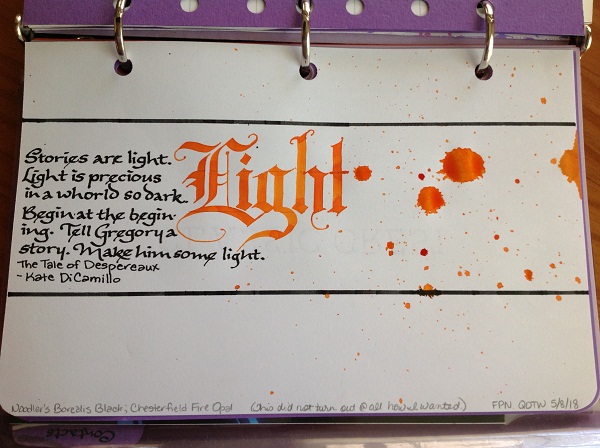 Stories are light.
Light is precious
in a whorld so dark.
Begin at the begin-
ing. Tell Gregory a
story. Make him some light.
The Tale of Despereaux
~ Kate DiCamillo
Light
Noodler's Borealis Black; Chesterfield Fire Opal (This did not turn out @ all how I wanted) FPN QOTW 5/8/18
Contacts